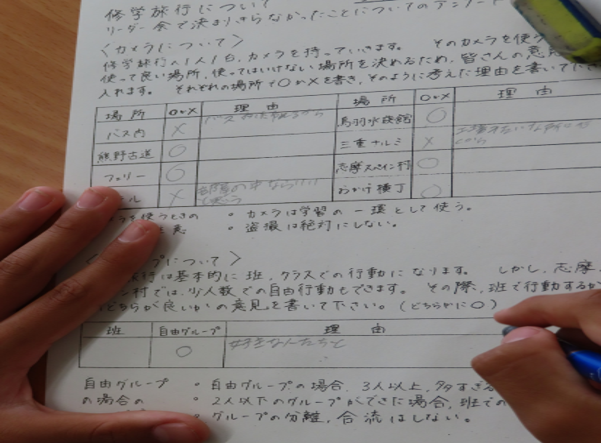 修学旅行について
リーダー会で決まりきらなかったことについてのアンケート
〈カメラについて〉
修学旅行へ1人1台、カメラを持っていきます。 そのカメラを使う
使って良い場所、使ってはいけない場所を決めるため、皆さんの意見
入れます。 それぞれの場所で○か×を書き、そのように考えた理由を書いて下
場所 ○か× 理由 場所 ○か× 理由
バス内 × 鳥羽水族館 ○
熊野古道 ○ 三重ナルミ ×
フェリー ○ 志摩スペイン村 ○
ル × おかげ横丁 ○
を使うときの ・カメラは学習の一環として使う。
・盗撮は絶対にしない。
プについて〉
行は基本的に班、クラスでの行動になります。 しかし、志摩
ン村では、少人数での自由行動もできます。 その際、班で行動するか
どちらが良いかの意見を書いて下さい。(どちらかに○)
班 自由グループ 理由
○ 好きな人たちと
自由グループ ・自由グループの場合、3人以上、多すぎる
の場合の ・2人以下のグループができた場合、班での
・グループの分離、合流はしない。